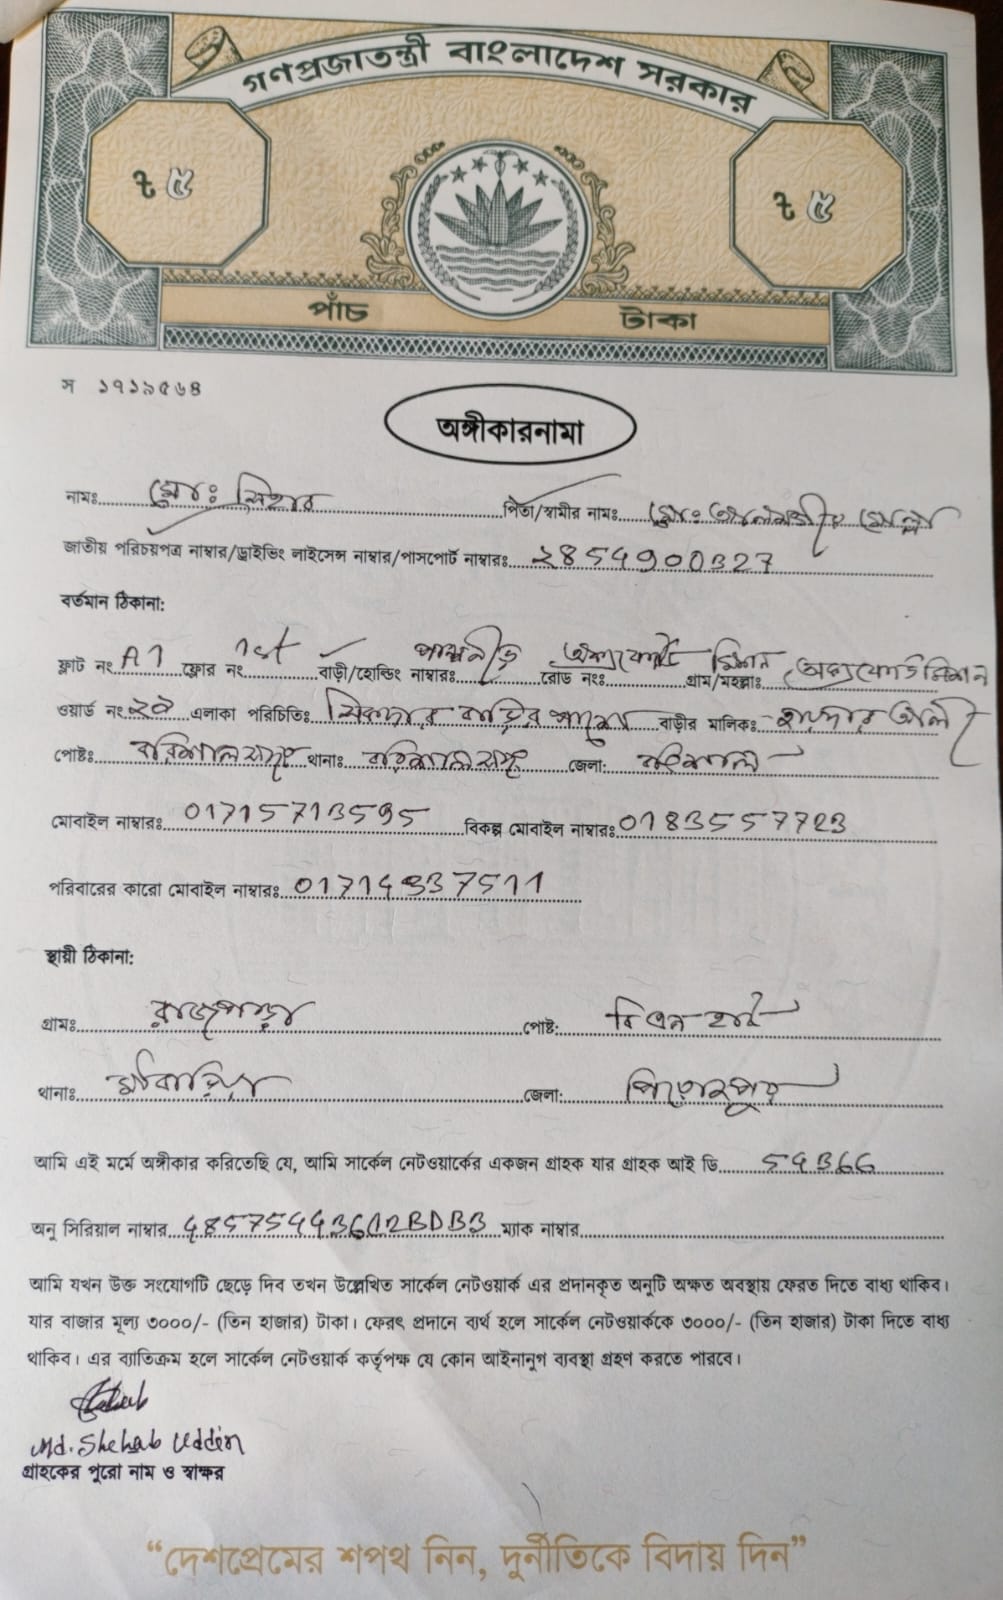 গণপ্রজাতন্ত্রী বাংলাদেশ সরকার
৳ ৫ ৳ ৫
পাঁচ টাকা
স ১৭১৯৫৬৪
অঙ্গীকারনামা
নামঃ মোঃ সিহাব পিতা/স্বামীর নামঃ মোঃ মোল্লা
জাতীয় পরিচয়পত্র নাম্বার/ড্রাইভিং লাইসেন্স নাম্বার/পাসপোর্ট নাম্বারঃ 2854900327
বর্তমান ঠিকানা:
ফ্লাট নং A1 ফ্লোর নং 1st বাড়ী/হোল্ডিং নাম্বারঃ রোড নংঃ অক্সফোর্ড মিশন গ্রাম/মহল্লাঃ অক্সফোর্ড মিশন
ওয়ার্ড নং এলাকা পরিচিতিঃ সিকদার বাড়ির পাশে বাড়ীর মালিকঃ আলী
পোষ্টঃ বরিশাল সদর থানাঃ বরিশাল সদর জেলা: বরিশাল
মোবাইল নাম্বারঃ 01715713595 বিকল্প মোবাইল নাম্বারঃ 01835557723
পরিবারের কারো মোবাইল নাম্বারঃ 01714937511
স্থায়ী ঠিকানা:
গ্রামঃ রাজপাড়া পোষ্ট: বিএন হাট
থানাঃ জেলা: পিরোজপুর
আমি এই মর্মে অঙ্গীকার করিতেছি যে, আমি সার্কেল নেটওয়ার্কের একজন গ্রাহক যার গ্রাহক আই ডি 54366
অনু সিরিয়াল নাম্বার 48575443602BDB3 ম্যাক নাম্বার
আমি যখন উক্ত সংযোগটি ছেড়ে দিব তখন উল্লেখিত সার্কেল নেটওয়ার্ক এর প্রদানকৃত অনুটি অক্ষত অবস্থায় ফেরত দিতে বাধ্য থাকিব।
যার বাজার মূল্য ৩০০০/- (তিন হাজার) টাকা। ফেরৎ প্রদানে ব্যর্থ হলে সার্কেল নেটওয়ার্ককে ৩০০০/- (তিন হাজার) টাকা দিতে বাধ্য
থাকিব। এর ব্যতিক্রম হলে সার্কেল নেটওয়ার্ক কর্তৃপক্ষ যে কোন আইনানুগ ব্যবস্থা গ্রহণ করতে পারবে।
Md. Shehab Uddin
গ্রাহকের পুরো নাম ও স্বাক্ষর
“দেশপ্রেমের শপথ নিন, দুর্নীতিকে বিদায় দিন”